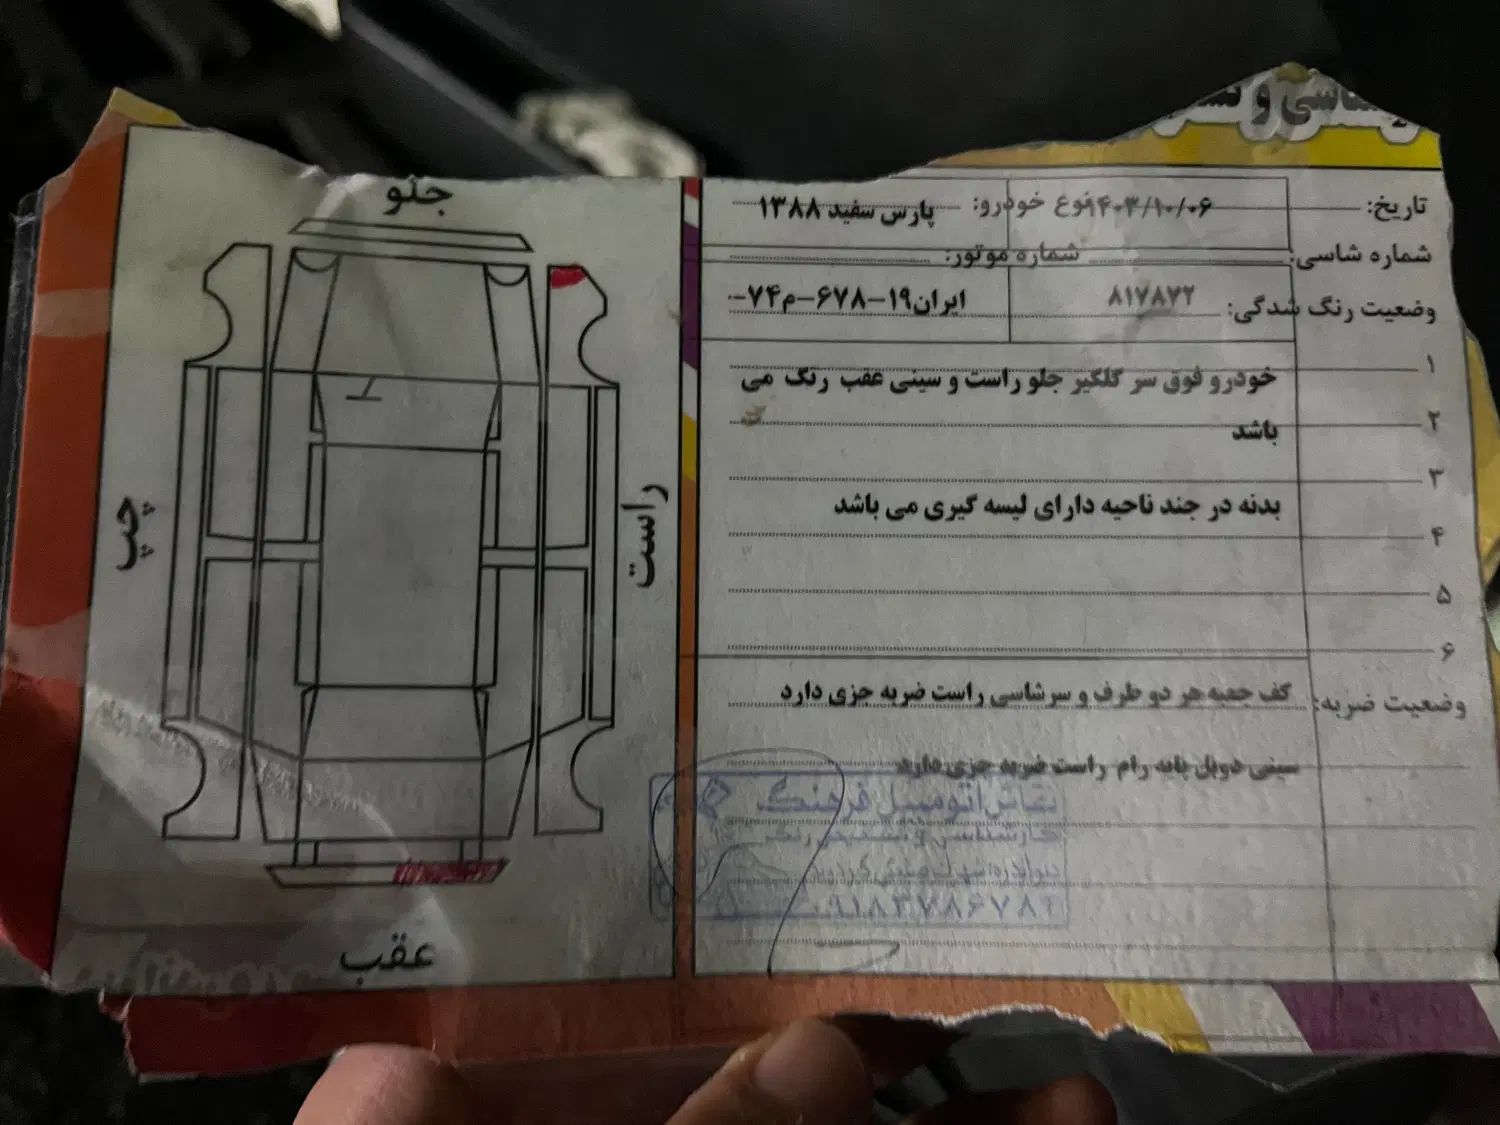 جلو
چپ
راست
عقب
تاریخ: ۱۴۰۳/۱۰/۰۶ نوع خودرو: پارس سفید ۱۳۸۸
شماره شاسی: شماره موتور:
وضعیت رنگ شدگی: ۸۱۷۸۷۲ ایران۱۹-۶۷۸-م۷۴-
۱ خودرو فوق سر گلگیر جلو راست و سینی عقب رنگ می
۲ باشد
۳ بدنه در جند ناحیه دارای لیسه گیری می باشد
۴
۵
۶
وضعیت ضربه: کف جعبه هر دو طرف و سرشاسی راست ضربه جزی دارد
سینی دوبل پایه رام راست ضربه جزی دارد
نقاش اتومبیل فرهنگ
کارشناسی و تشخیص رنگ